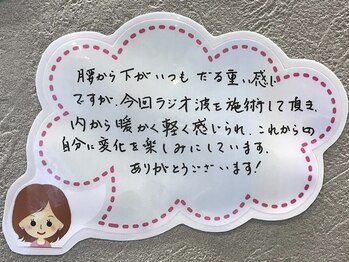 腰から下がいつも だる重い感じ
ですが、今回ラジオ波を施術して頂き、
内から暖かく軽く感じられ、これからの
自分に変化を楽しみにしています。
ありがとうございます!